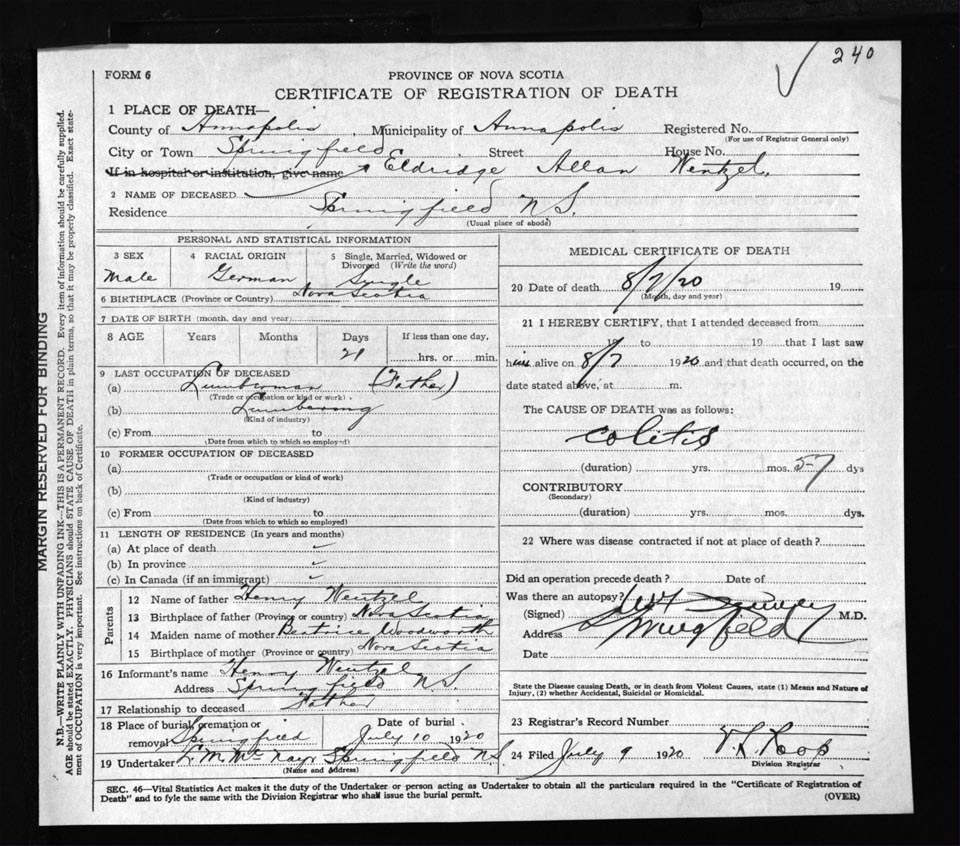 240
FORM 6
PROVINCE OF NOVA SCOTIA
CERTIFICATE OF REGISTRATION OF DEATH
1 PLACE OF DEATH—
County of Annapolis Municipality of Annapolis Registered No.
(For use of Registrar General only)
City or Town Springfield Street House No.
If in hospital or institution, give name Eldridge Allan Wentzel
2 NAME OF DECEASED
Residence Springfield N S.
(Usual place of abode)
PERSONAL AND STATISTICAL INFORMATION
3 SEX 4 RACIAL ORIGIN 5 Single, Married, Widowed or
Divorced (Write the word)
Male German Single
6 BIRTHPLACE (Province or Country) Nova Scotia
7 DATE OF BIRTH (month, day and year)
8 AGE Years Months Days If less than one day,
21 hrs. or min.
9 LAST OCCUPATION OF DECEASED
(a) Lumberman (Father)
(Trade or occupation or kind or work)
(b) Lumbering
(Kind of industry)
(c) From to
(Date from which to which so employed)
10 FORMER OCCUPATION OF DECEASED
(a)
(Trade or occupation or kind of work)
(b)
(Kind of industry)
(c) From to
(Date from which to which so employed)
11 LENGTH OF RESIDENCE (In years and months)
(a) At place of death
(b) In province
(c) In Canada (if an immigrant)
Parents
12 Name of father Henry Wentzel
13 Birthplace of father (Province or country) Nova Scotia
14 Maiden name of mother Beatrice Woodworth
15 Birthplace of mother (Province or country) Nova Scotia
16 Informant's name Henry Wentzel
Address Springfield N S.
17 Relationship to deceased Father
18 Place of burial, cremation or Date of burial
removal Springfield July 10 1920
19 Undertaker Springfield N S
(Name and Address)
MEDICAL CERTIFICATE OF DEATH
20 Date of death 8/7/20 19
(Month, day and year)
21 I HEREBY CERTIFY, that I attended deceased from
19 to 19 that I last saw
him alive on 8/7 1920 and that death occurred, on the
date stated above, at m.
The CAUSE OF DEATH was as follows:
Colitis
(duration) yrs. mos. dys
CONTRIBUTORY
(Secondary)
(duration) yrs. mos. dys.
22 Where was disease contracted if not at place of death?
Did an operation precede death? Date of
Was there an autopsy?
(Signed) M.D.
Address Springfield
Date
State the Disease causing Death, or in death from Violent Causes, state (1) Means and Nature of
Injury, (2) whether Accidental, Suicidal or Homicidal.
23 Registrar's Record Number
24 Filed July 9 1920
Division Registrar
SEC. 46—Vital Statistics Act makes it the duty of the Undertaker or person acting as Undertaker to obtain all the particulars required in the "Certificate of Registration of
Death" and to fyle the same with the Division Registrar who shall issue the burial permit.
(OVER)
MARGIN RESERVED FOR BINDING
N.B.—WRITE PLAINLY WITH UNFADING INK—THIS IS A PERMANENT RECORD. Every item of information should be carefully supplied.
AGE should be stated EXACTLY. PHYSICIANS should STATE CAUSE OF DEATH in plain terms, so that it may be properly classified. Exact state-
ment of OCCUPATION is very important. See instructions on back of Certificate.